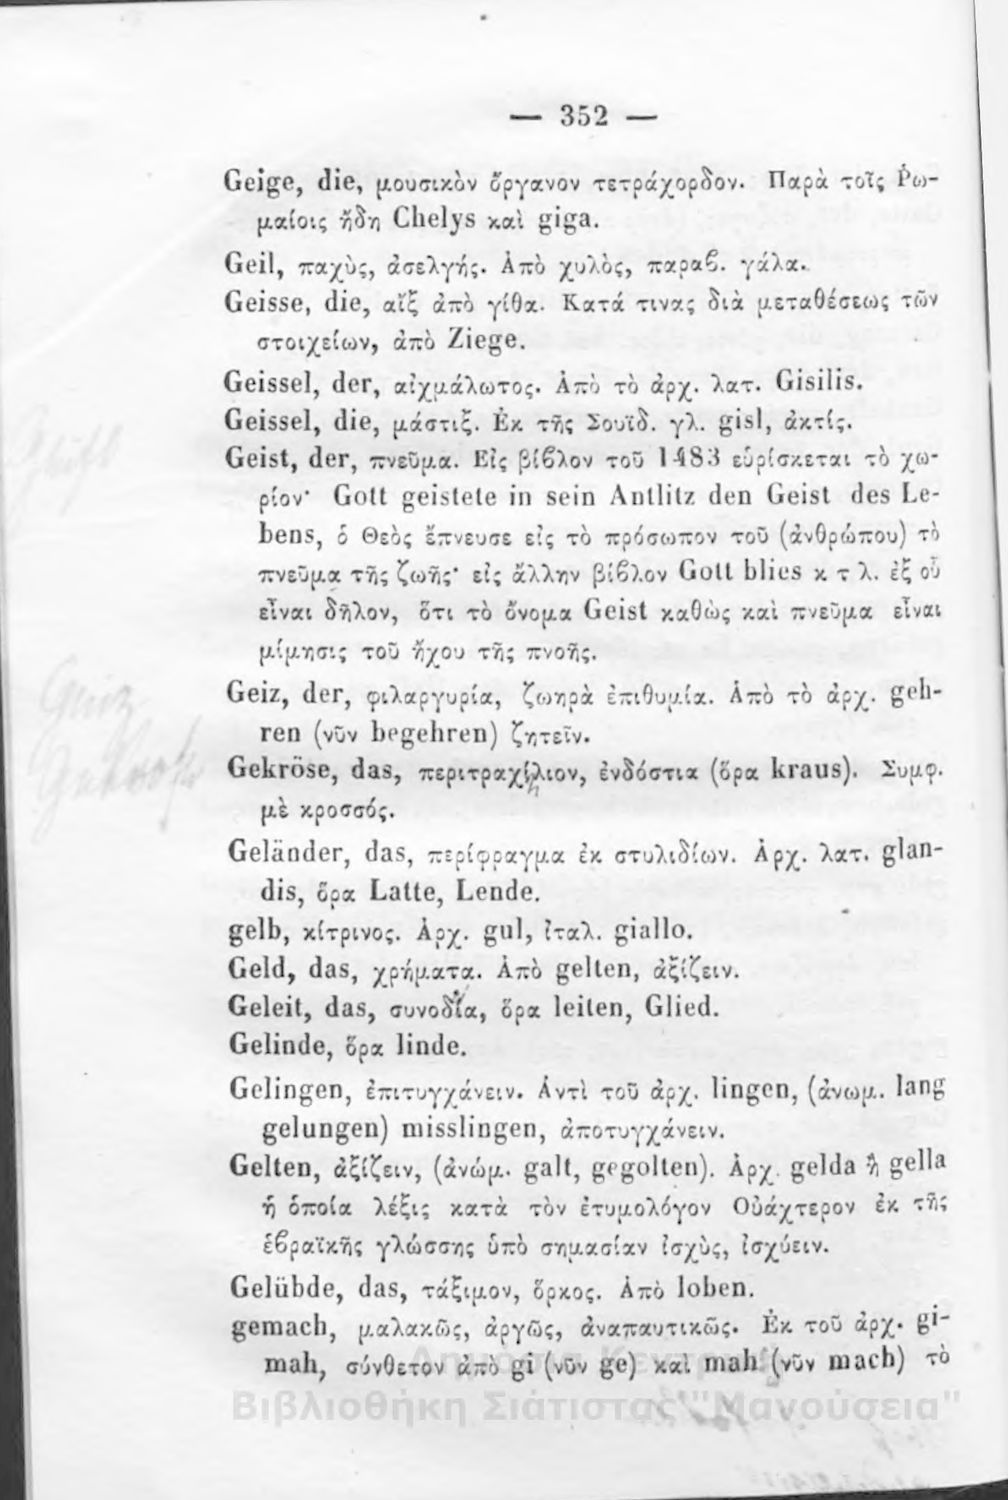 — 352 —
Geige, die, μουσικὸν ὄργανον τετράχορδον. Παρὰ τοῖς Ῥω-
μαίοις ἤδη Chelys καὶ giga.
Geil, παχὺς, ἀσελγής. Ἀπὸ χυλὸς, παραβ. γάλα.
Geisse, die, αἴξ ἀπὸ γίθα. Κατά τινας διὰ μεταθέσεως τῶν
στοιχείων, ἀπὸ Ziege.
Geissel, der, αἰχμάλωτος. Ἀπὸ τὸ ἀρχ. λατ. Gisilis.
Geissel, die, μάστιξ. Ἐκ τῆς Σουϊδ. γλ. gisl, ἀκτίς.
Geist, der, πνεῦμα. Εἰς βίβλον τοῦ 1483 εὑρίσκεται τὸ χω-
ρίον· Gott geistete in sein Antlitz den Geist des Le-
bens, ὁ Θεὸς ἔπνευσε εἰς τὸ πρόσωπον τοῦ (ἀνθρώπου) τὸ
πνεῦμα τῆς ζωῆς· εἰς ἄλλην βίβλον Gott blies κ τ λ. ἐξ οὗ
εἶναι δῆλον, ὅτι τὸ ὄνομα Geist καθὼς καὶ πνεῦμα εἶναι
μίμησις τοῦ ἤχου τῆς πνοῆς.
Geiz, der, φιλαργυρία, ζωηρὰ ἐπιθυμία. Ἀπὸ τὸ ἀρχ. geh-
ren (νῦν begehren) ζητεῖν.
Gekröse, das, περιτραχίλιον, ἐνδόστια (ὅρα kraus). Συμφ.
μὲ κροσσός.
Geländer, das, περίφραγμα ἐκ στυλιδίων. Ἀρχ. λατ. glan-
dis, ὅρα Latte, Lende.
gelb, κίτρινος. Ἀρχ. gul, ἰταλ. giallo.
Geld, das, χρήματα. Ἀπὸ gelten, ἀξίζειν.
Geleit, das, συνοδία, ὅρα leiten, Glied.
Gelinde, ὅρα linde.
Gelingen, ἐπιτυγχάνειν. Ἀντὶ τοῦ ἀρχ. lingen, (ἀνωμ. lang
gelungen) misslingen, ἀποτυγχάνειν.
Gelten, ἀξίζειν, (ἀνώμ. galt, gegolten). Ἀρχ. gelda ἢ gella
ἡ ὁποία λέξις κατὰ τὸν ἐτυμολόγον Οὐάχτερον ἐκ τῆς
ἑβραϊκῆς γλώσσης ὑπὸ σημασίαν ἰσχὺς, ἰσχύειν.
Gelübde, das, τάξιμον, ὅρκος. Ἀπὸ loben.
gemach, μαλακῶς, ἀργῶς, ἀναπαυτικῶς. Ἐκ τοῦ ἀρχ. gi-
mah, σύνθετον ἀπὸ gi (νῦν ge) καὶ mah (νῦν mach) τὸ
Δημόσια Κεντρική
Βιβλιοθήκη Σιάτιστας "Μανούσεια"